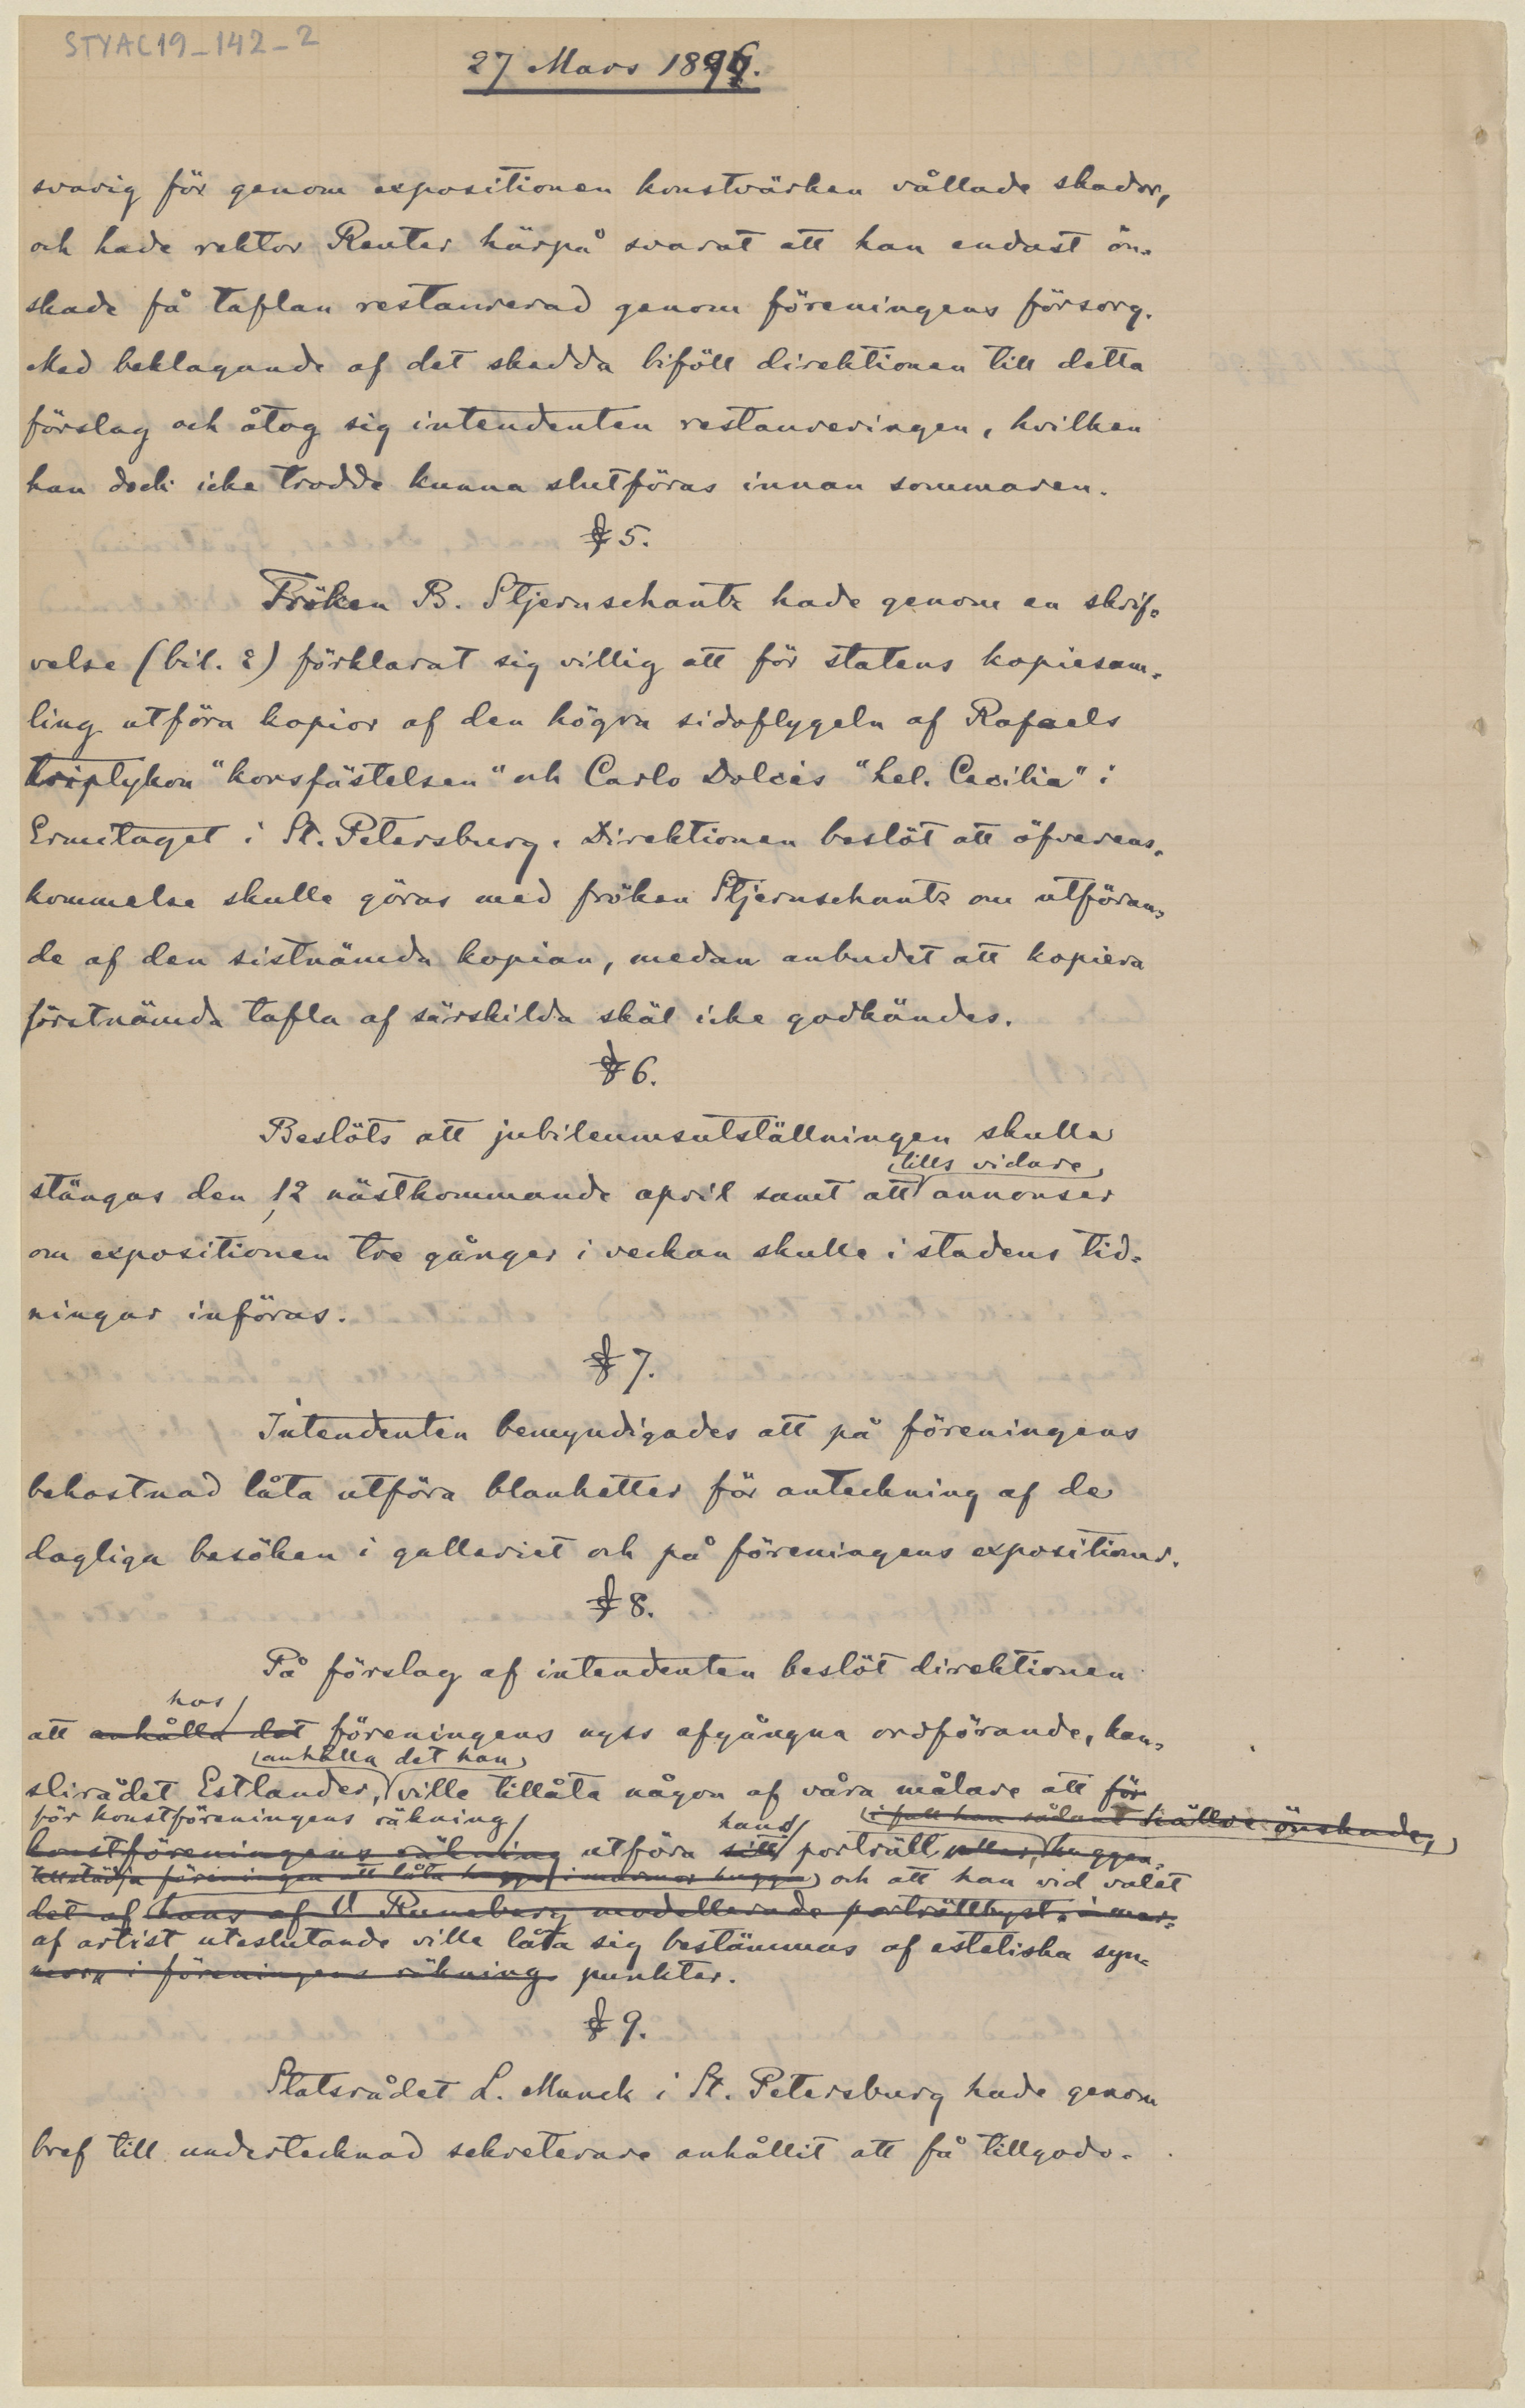 STYAC19_142_2
27 Mars 1896.
svarig för genom expositionen konstvärken vållade skador,
och hade rektor Reuter härpå svarat att han endast ön-
skade få taflan restaurerad genom föreningens försorg.
Med beklagande af det skedda biföll direktionen till detta
förslag och åtog sig intendenten restaureringen, hvilken
han dock icke trodde kunna slutföras innan sommaren.
§ 5.
Fröken B. Stjernschantz hade genom en skrif-
velse (bil. 2) förklarat sig villig att för statens kopiesam-
ling utföra kopior af den högra sidoflygeln af Rafaels
triptykon "korsfästelsen" och Carlo Dolcis "hel. Cecilia" i
Ermitaget i St. Petersburg. Direktionen beslöt att öfverens-
kommelse skulle göras med fröken Stjernschantz om utföran-
de af den sistnämda kopian, medan anbudet att kopiera
förstnämda tafla af särskilda skäl icke godkändes.
§ 6.
Beslöts att jubileumsutställningen skulle
tills vidare
stängas den 12 nästkommande april samt att annonser
om expositionen tre gånger i veckan skulle i stadens tid-
ningar införas.
§ 7.
Intendenten bemyndigades att på föreningens
bekostnad låta utföra blanketter för anteckning af de
dagliga besöken i galleriet och på föreningens expositioner.
§ 8.
På förslag af intendenten beslöt direktionen
hos
att anhålla det föreningens nyss afgångna ordförande, kan-
anhålla det han
slirådet Estlander, ville tillåta någon af våra målare att för
för konstföreningens räkning
hans
i fall han sådant hällre önskade,
konstföreningens räkning utföra sitt porträtt eller huggan-
tillstädja föreningen att låta hugga i marmor hugga och att han vid valet
det af hans af V Runeberg modellerade porträttbyst i mar-
af artist uteslutande ville låta sig bestämmas af estetiska syn-
mor i föreningens räkning punkter.
§ 9.
Statsrådet L. Munck i St. Petersburg hade genom
bref till undertecknad sekreterare anhållit att få tillgodo-